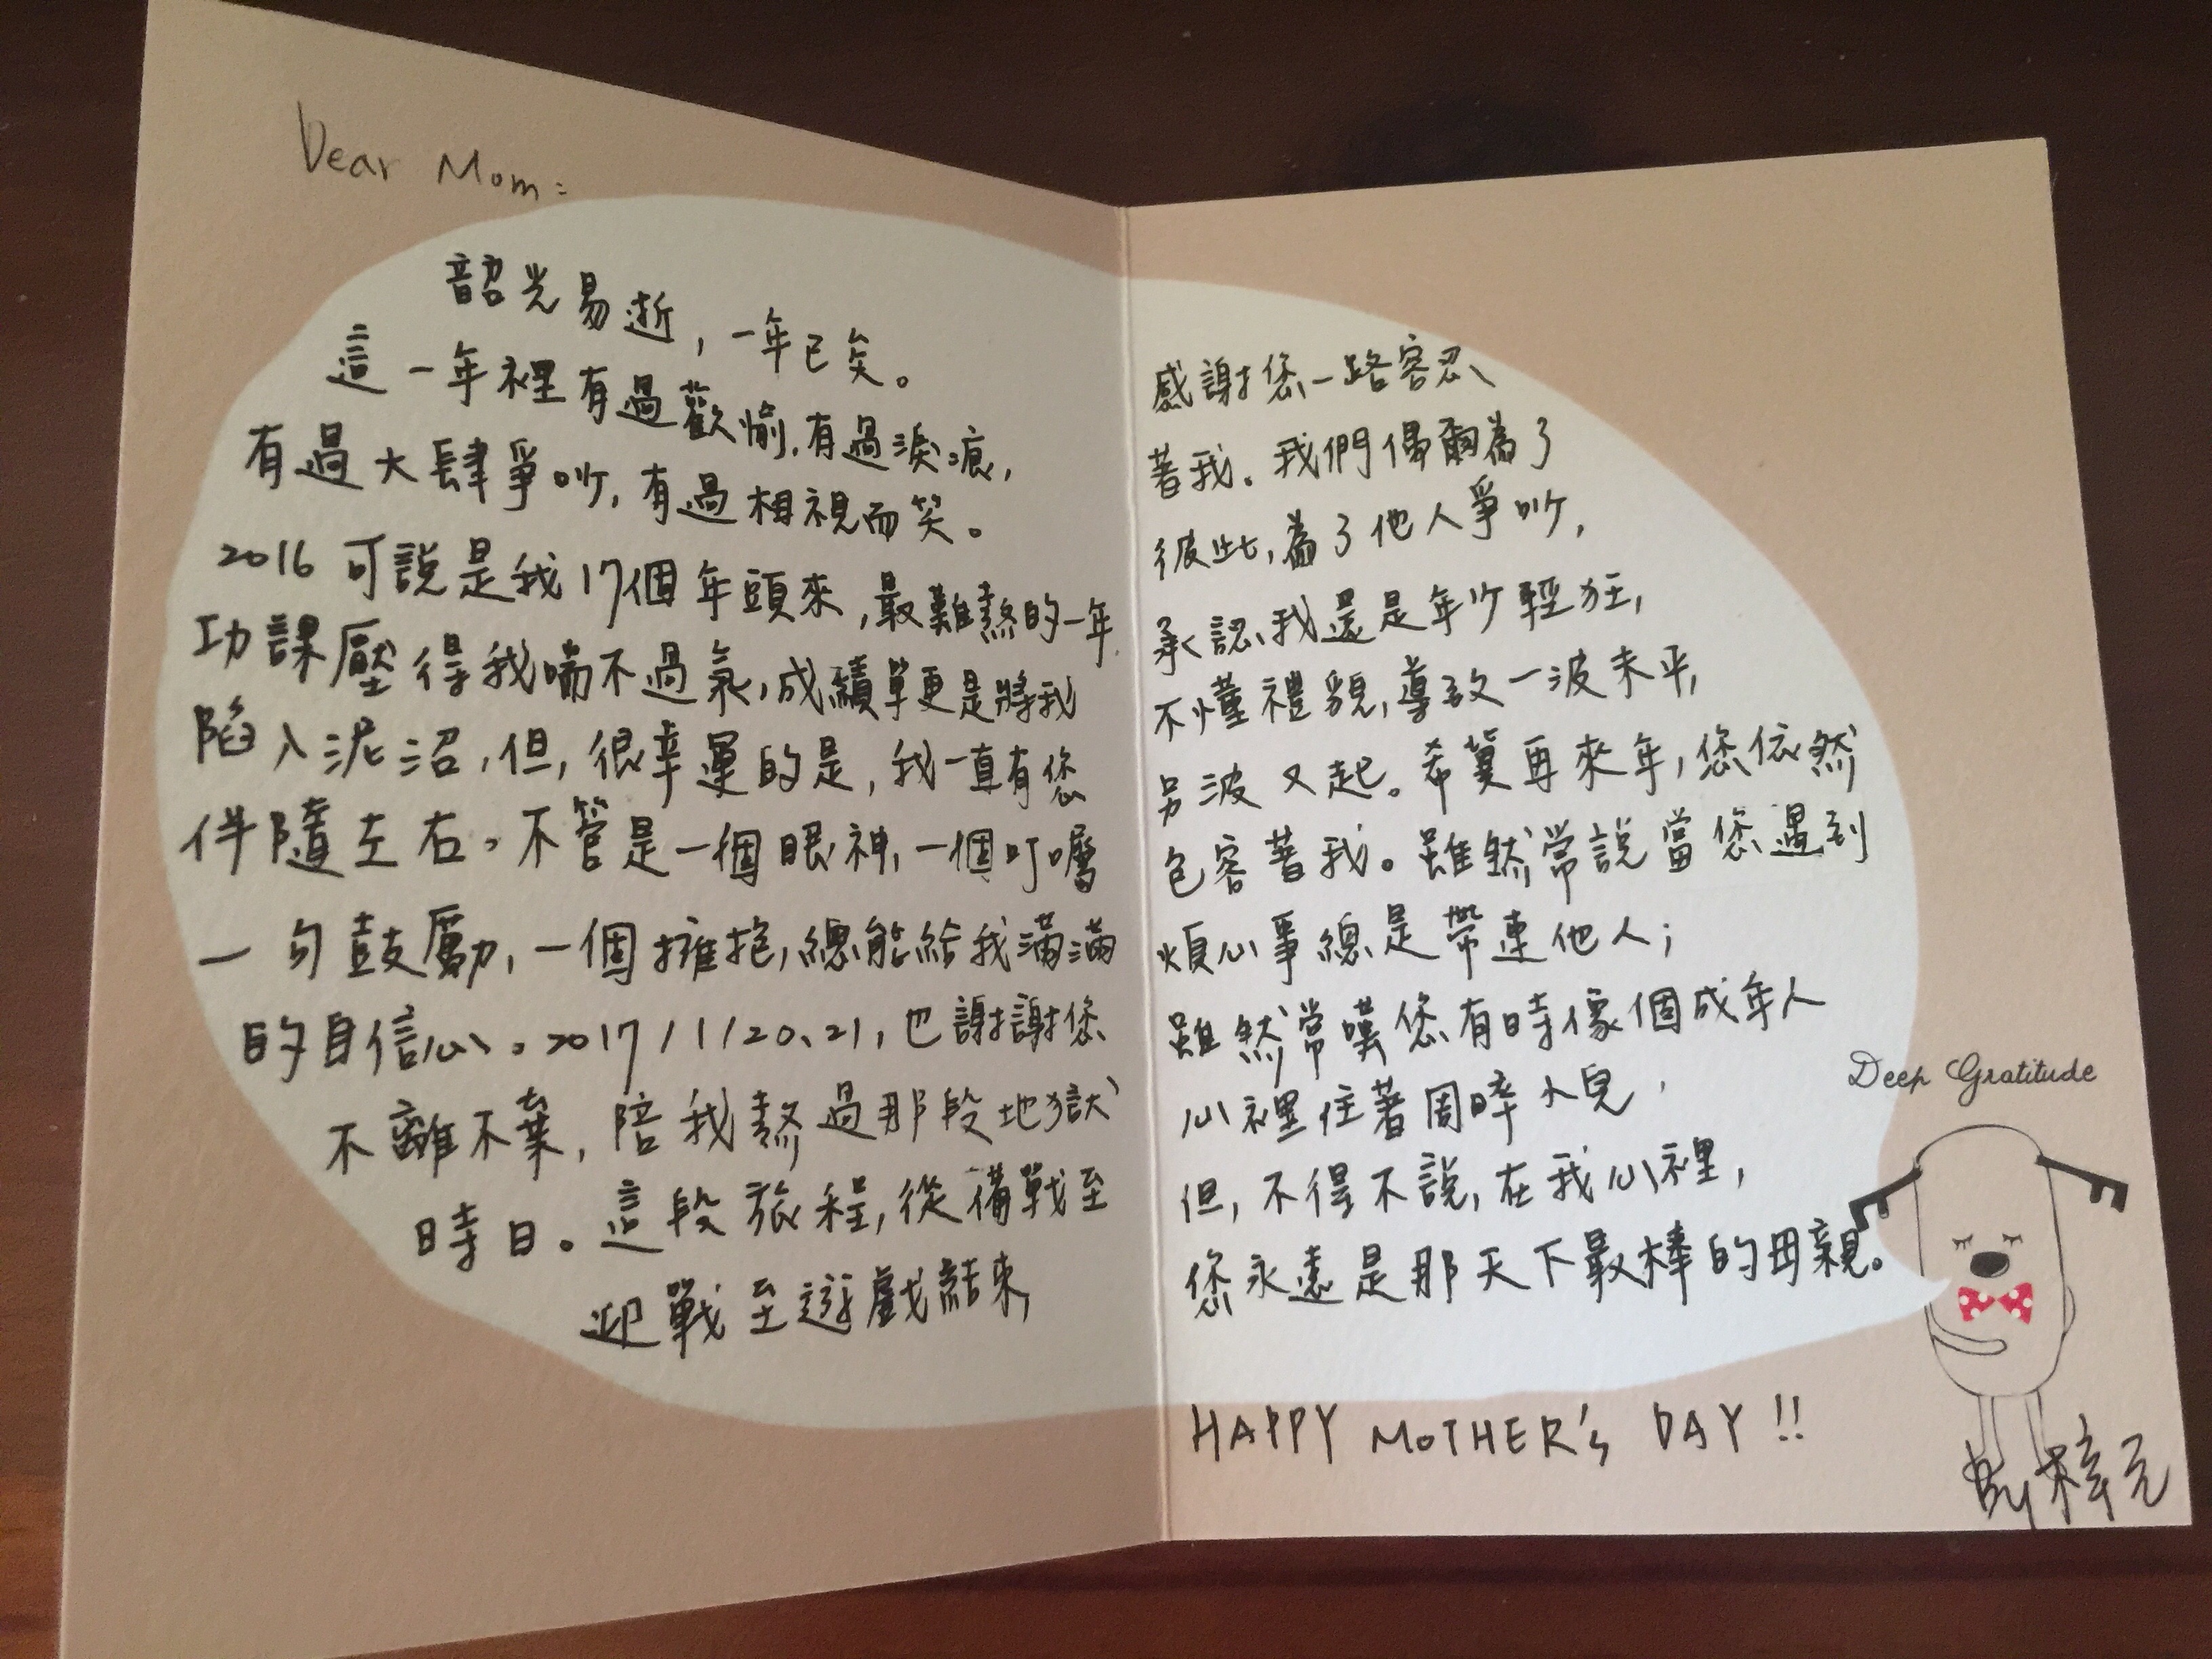 Dear Mom:
韶光易逝,一年已矣。
這一年裡有過歡愉,有過淚痕,
有過大肆爭吵,有過相視而笑。
2016可說是我17個年頭來,最難熬的一年
功課壓得我喘不過氣,成績單更是將我
陷入泥沼,但,很幸運的是,我一直有您
伴隨左右。不管是一個眼神,一個叮嚀
一句鼓勵,一個擁抱,總能給我滿滿
的自信心。2017/1/20、21,也謝謝您
不離不棄,陪我熬過那段地獄
時日。這段旅程,從備戰至
迎戰至遊戲結束,
感謝您一路容忍
著我。我們偶爾為了
彼此,為了他人爭吵,
承認我還是年少輕狂,
不懂禮貌,導致一波未平,
另波又起。希冀再來年,您依然
包容著我。雖然常說當您遇到
煩心事總是帶連他人;
雖然常嘆您有時像個成年人
心裡住著周晬小兒,
但,不得不說,在我心裡,
您永遠是那天下最棒的母親。
Deep Gratitude
HAPPY MOTHER'S DAY!!
By 梓元